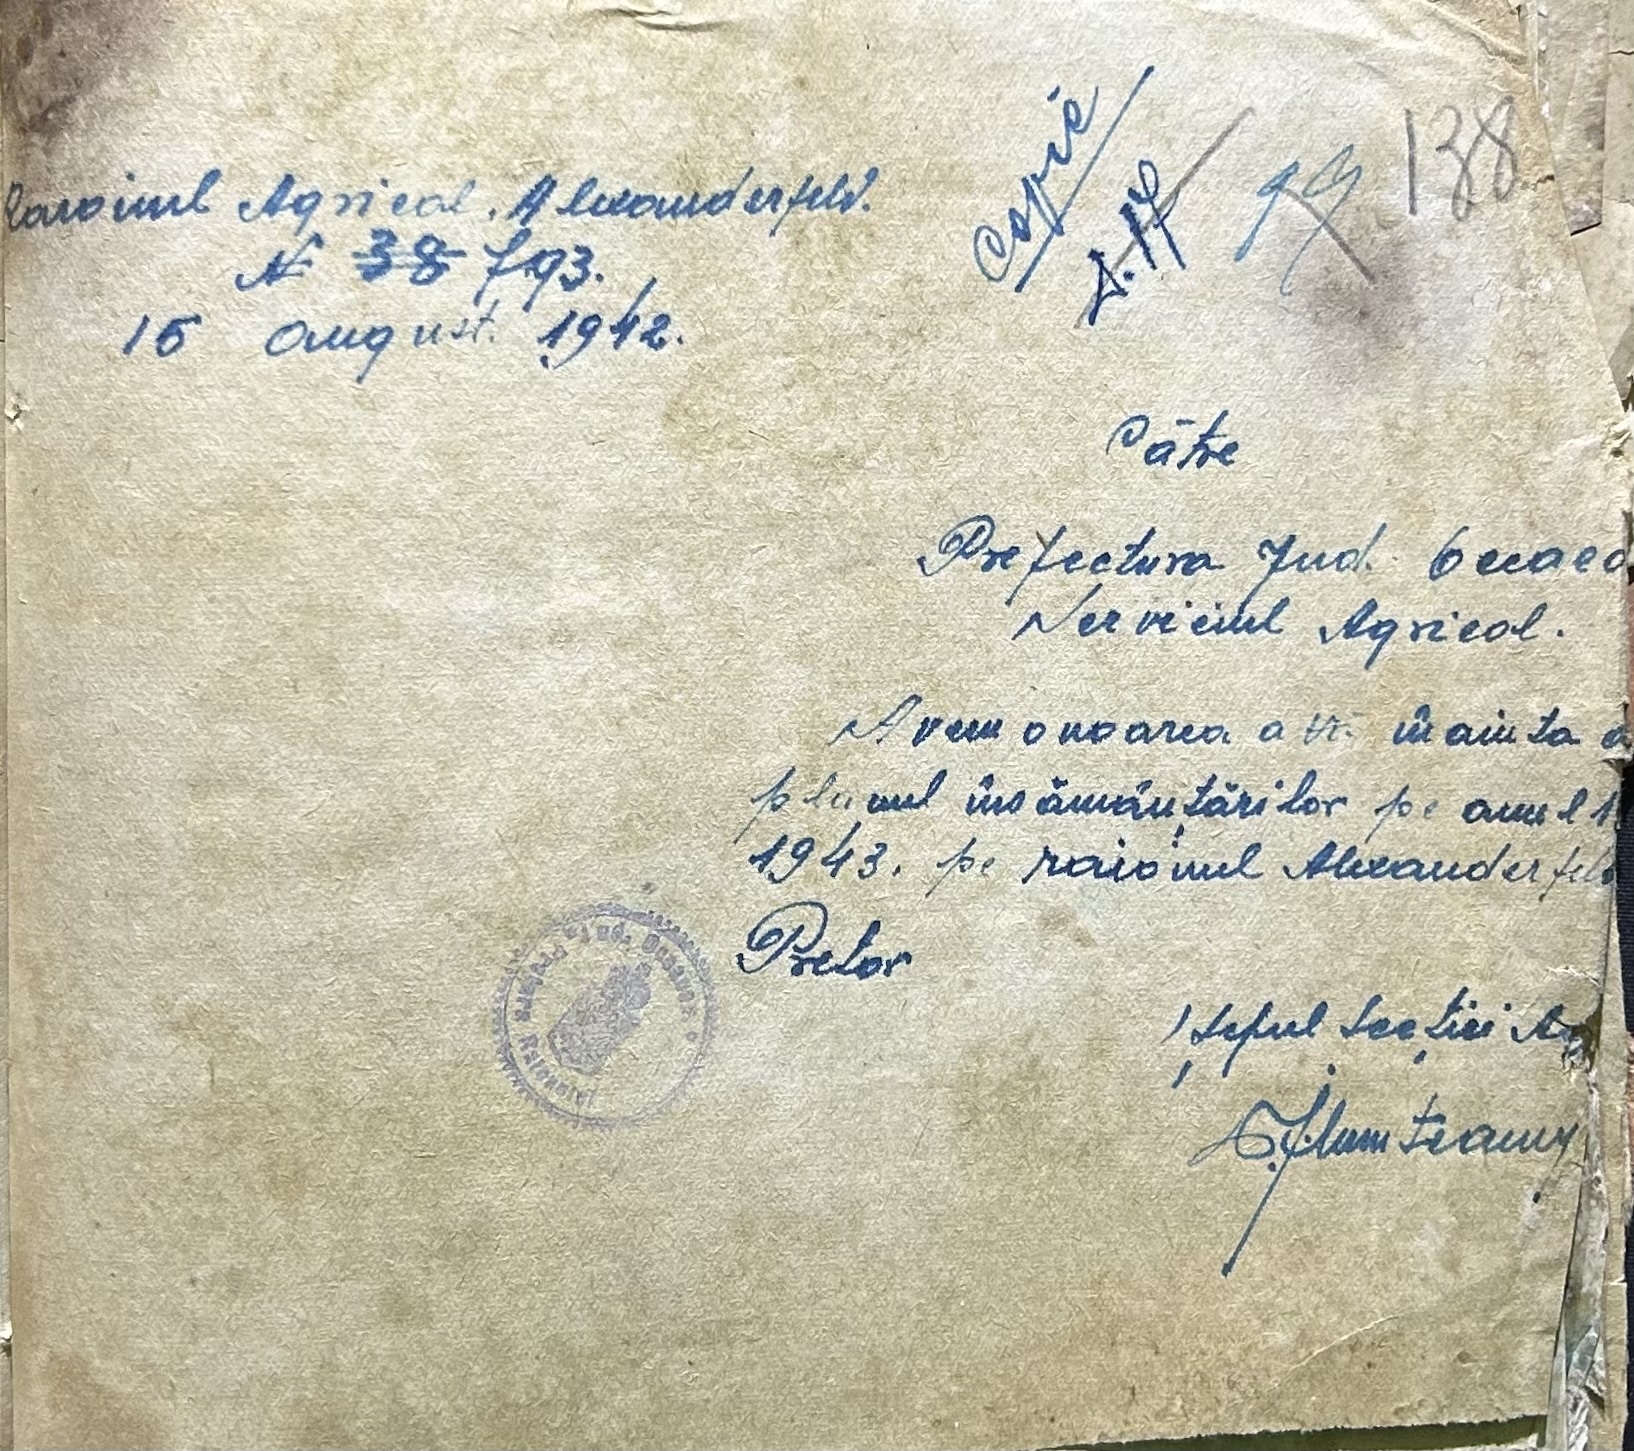 Raroinul Agricol. Alexanderfeld.
N 38 793.
15 august. 1942.
Copie
138
Către
Prefectura Jud. Oceaco
Serviciul Agricol.
Avem onoarea a vă înainta a
planul însămânțărilor pe anul 1
1943. pe raionul Alexanderfeld
Pretor
Șeful Secției Ag